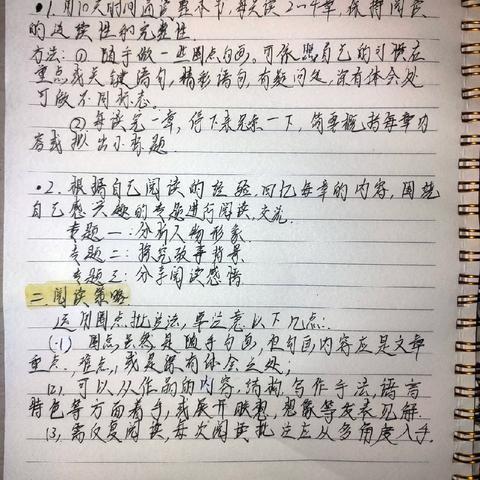 •1. 用10天时间通读整本书,每天读2~4章,保持阅读
的连续性和完整性.
方法:① 随手做一些圈点勾画。可依照自己的习惯在
重点或关键语句,精彩语句,有疑问处,深有体会处
可做不同标志。
② 每读完一章,停下来思索一下,简要概括每章内
容或拟出小标题.
•2. 根据自己阅读的经验,回忆每章的内容,围绕
自己感兴趣的专题进行阅读.交流.
专题一:分析人物形象.
专题二:探究故事背景.
专题三:分享阅读感悟
二.阅读策略.
运用圈点批注法,要注意以下几点:
(1) 圈点虽然是随手勾画,但勾画内容应是文章
重点.难点,或是深有体会之处;
(2). 可以从作品的内容.结构.写作手法,语言
特色等方面着手,或展开联想,想象等发表见解.
(3, 需反复阅读,每次阅读批注应从多角度入手.